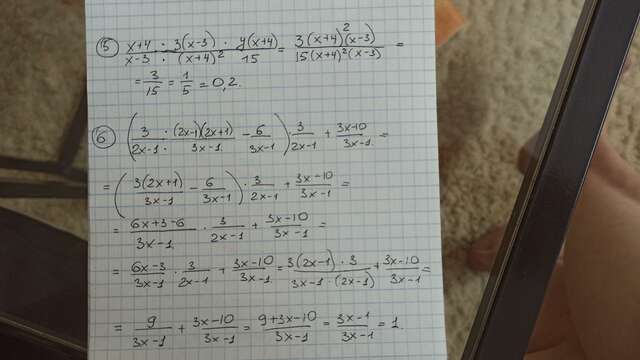 5) (x+4)/(x-3) : 3(x-3)/(x+4)² · y(x+4)/15 = 3(x+4)²(x-3)/15(x+4)²(x-3) =
= 3/15 = 1/5 = 0,2.
6) (3/(2x-1) : (2x-1)(2x+1)/(3x-1) - 6/(3x-1)) · 3/(2x-1) + (3x-10)/(3x-1) =
= (3(2x+1)/(3x-1) - 6/(3x-1)) · 3/(2x-1) + (3x-10)/(3x-1) =
= (6x+3-6)/(3x-1) · 3/(2x-1) + (3x-10)/(3x-1) =
= (6x-3)/(3x-1) · 3/(2x-1) + (3x-10)/(3x-1) = 3(2x-1)·3/(3x-1·(2x-1)) + (3x-10)/(3x-1) =
= 9/(3x-1) + (3x-10)/(3x-1) = (9+3x-10)/(3x-1) = (3x-1)/(3x-1) = 1.